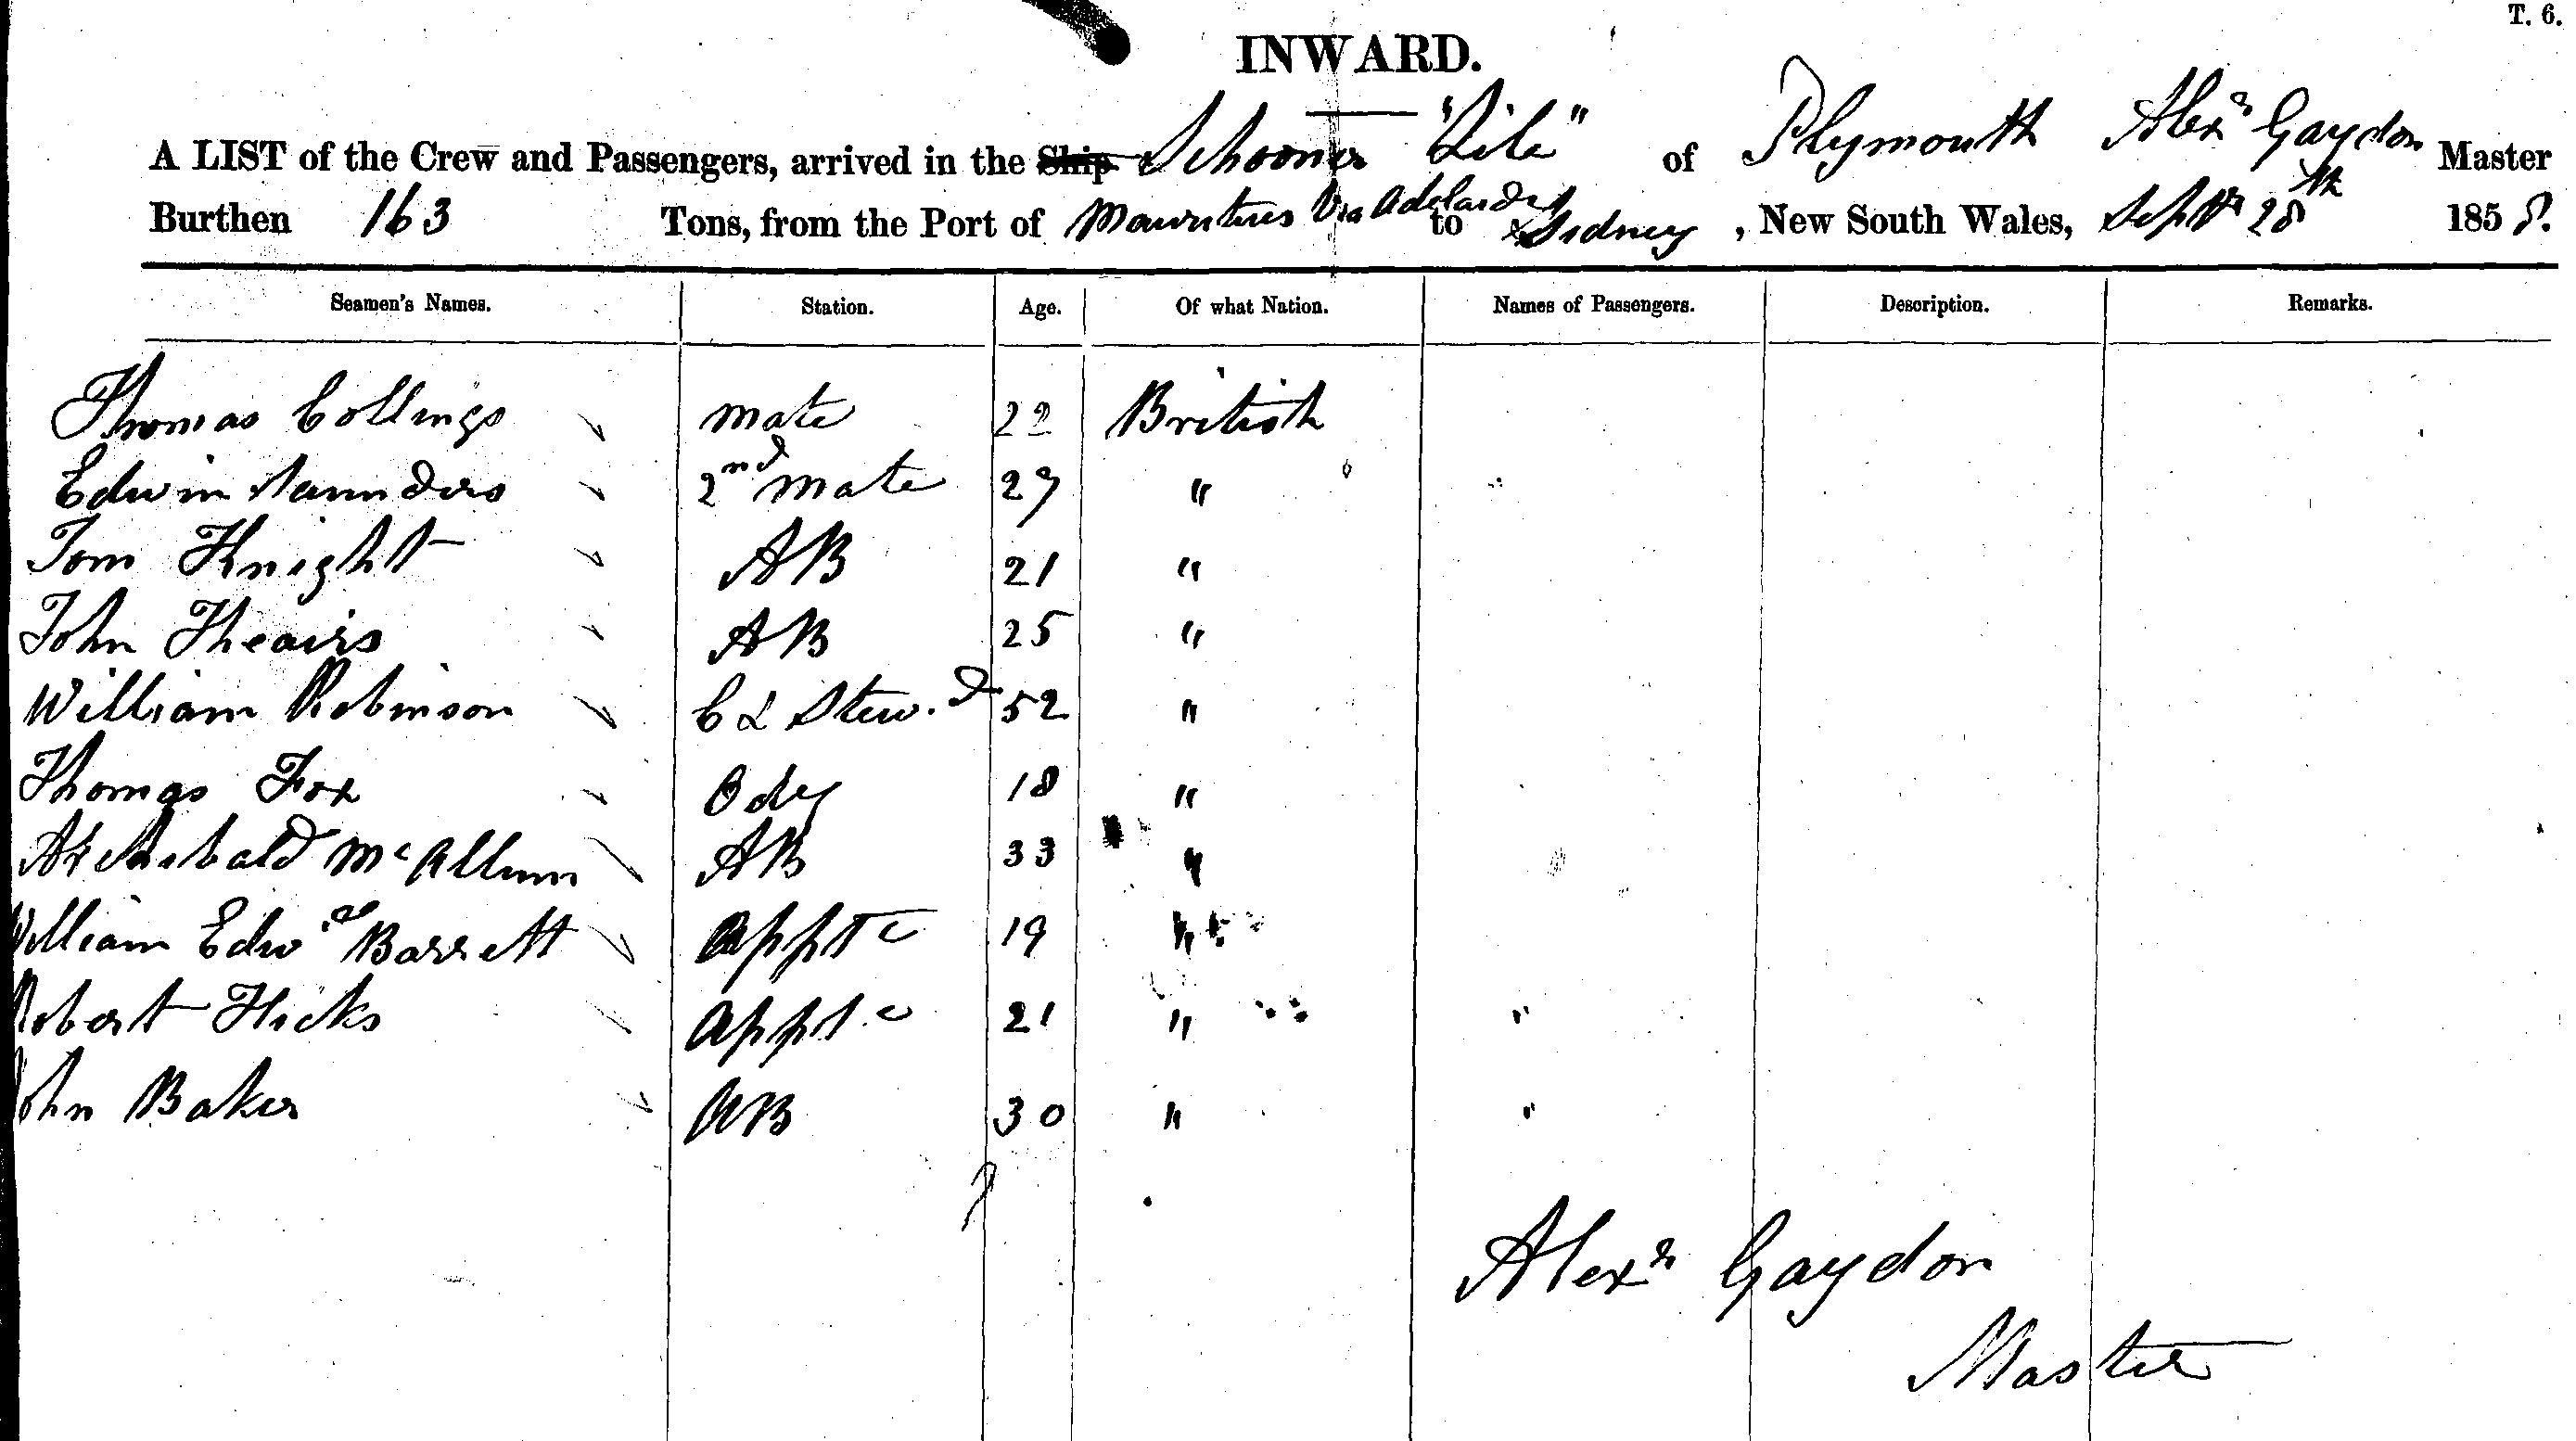 T. 6.
INWARD.
A LIST of the Crew and Passengers, arrived in the Ship Schooner "Zile" of Plymouth Alexr Gaydon Master
Burthen 163 Tons, from the Port of Mauritius Via Adelaide to Sidney, New South Wales, Septr 28th 1858.
Seamen's Names. Station. Age. Of what Nation. Names of Passengers. Description. Remarks.
Thomas Collings mate 22 British
Edwin Saunders 2nd mate 27 "
Tom Knight AB 21 "
John Theairs AB 25 "
William Robinson C & Stew.d 52 "
Thomas Fox Ody 18 "
Archibald McAllum AB 33 "
William Edwd Barrett appte 19 "
Robert Hicks appte 21 " "
John Baker AB 30 " "
Alexr Gaydon
Master